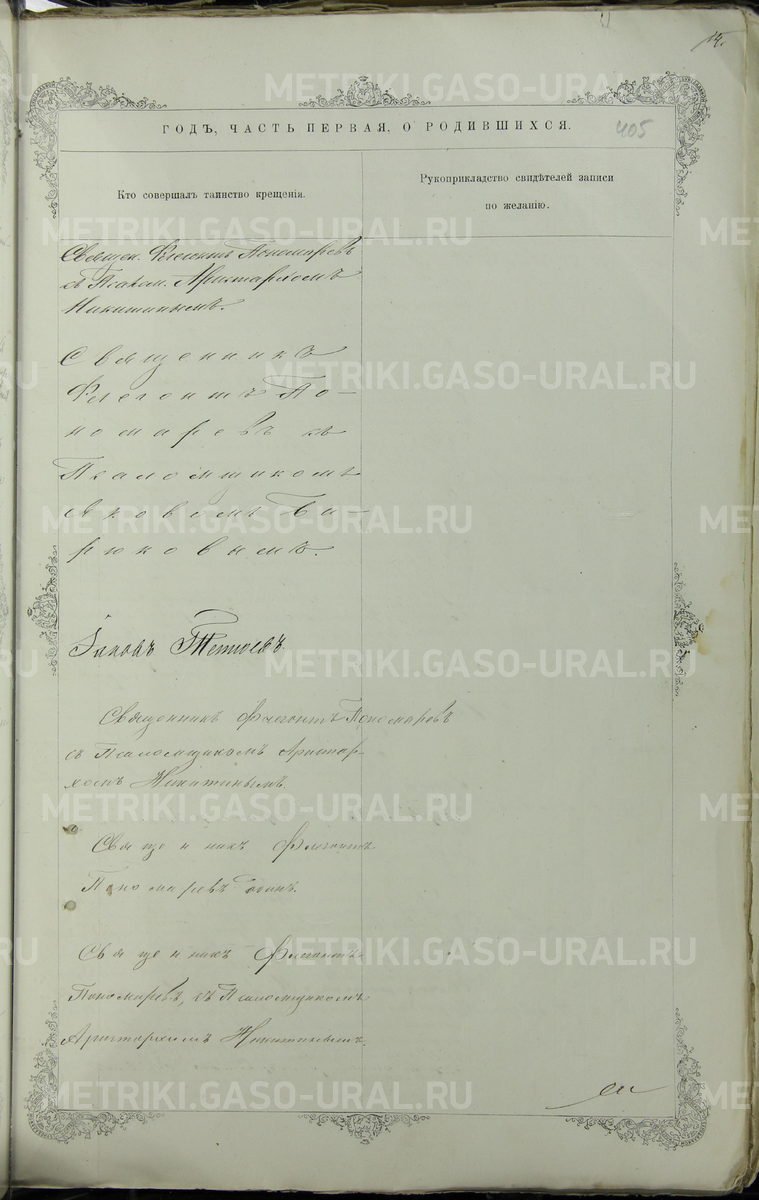 14.
ГОДЪ, ЧАСТЬ ПЕРВАЯ, О РОДИВШИХСЯ.
405
Кто совершалъ таинство крещенія.
Рукоприкладство свидѣтелей записи
по желанію.
Священ. Флегонтъ Пономаревъ
съ Псалом. Аристархомъ
Никитинымъ.
Священникъ
Флегонтъ По-
номаревъ съ
Псаломщикомъ
Яковомъ Би-
рюковымъ.
Іаковъ
Священникъ Флегонтъ Пономаревъ
съ Псаломщикомъ Аристар-
хомъ Никитинымъ.
Священникъ Флегонтъ
Пономаревъ одинъ.
Священникъ Флегонтъ
Пономаревъ, съ Псаломщикомъ
Аристархомъ Никитинымъ.
METRIKI.GASO-URAL.RU